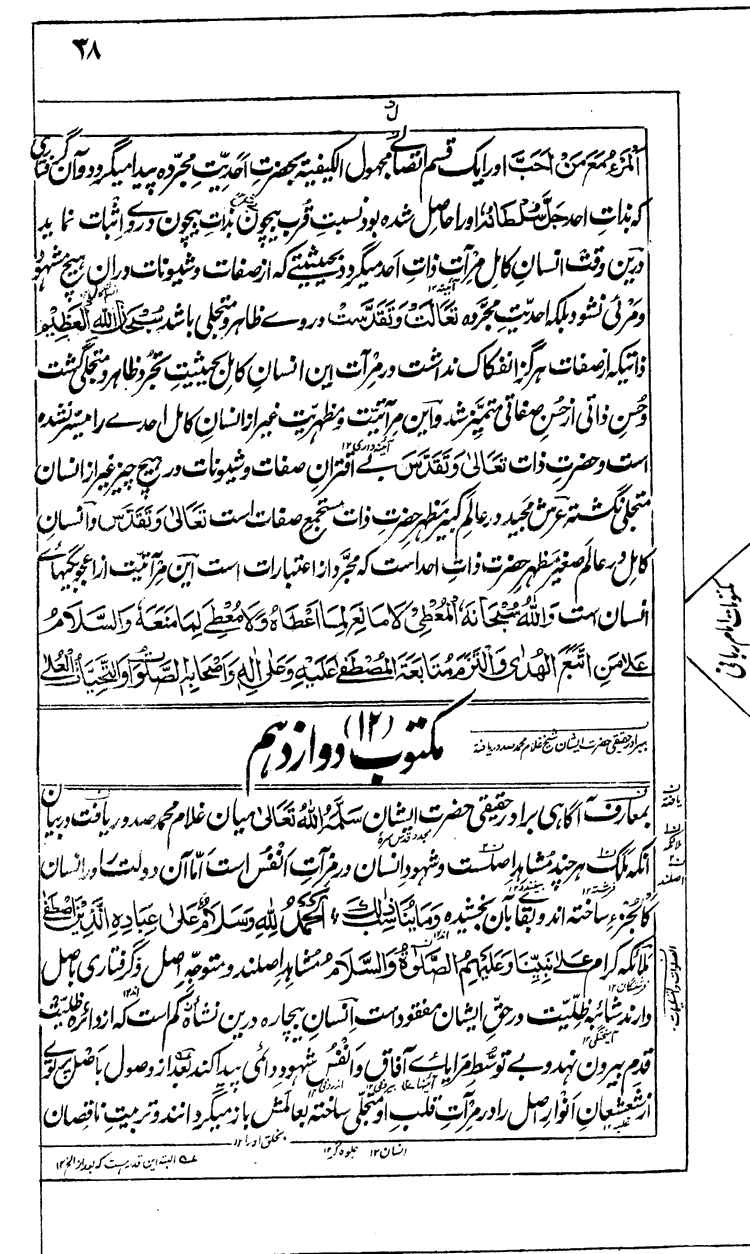 ۳۸
اَلْمَرْءُ مَعَ مَنْ اَحَبَّ اورا یک قسم اتصالے مجہول الکیفیۃ بحضرتِ احدیّتِ مجرّدہ پیدا میگردد وآن گرفتاری
کہ بذاتِ احد جَلَّ سُلْطَانُہٗ اورا حاصل شدہ بود نسبت قرب بیچون بذاتِ بیچون در وے اثبات نماید
درین وقت انسانِ کامل مرآتِ ذاتِ احد میگردد بحیثیتے کہ از صفات و شیونات دران ہیچ مشہود
ومرئی نشود بلکہ احدیتِ مجرّدہ تَعَالَتْ وَتَقَدَّسَتْ در وے ظاہر و متجلی باشد سُبْحَانَ اللهِ الْعَظِیْمِ
ذاتیکہ از صفات ہرگز انفکاک نداشت در مرآت این انسانِ کامل بحیثیتِ تجرّد ظاہر و متجلی گشت
وحسنِ ذاتی از حسنِ صفاتی متمیّز شد واین مرآتیّت و مظہریّت غیر از انسان کامل احدے را میسّر نشدہ
است وحضرتِ ذات تَعَالٰی وَتَقَدَّسَ بے اقترانِ صفات و شیونات در ہیچ چیز غیر از انسان
متجلی نگشتہ عرشِ مجید در عالمِ کبیر مظہرِ حضرتِ ذاتِ مستجمعِ صفات است تَعَالٰی وَتَقَدَّسَ وانسانِ
کامل در عالمِ صغیر مظہرِ حضرتِ ذاتِ احد است کہ مجرّد از اعتبارات است این مرآتیّت از اعجوبگیہائے
انسان است وَاللهُ سُبْحَانَهُ الْمُعْطِیْ لَا مَانِعَ لِمَا اَعْطَاهُ وَلَا مُعْطِیَ لِمَا مَنَعَهٗ وَالسَّلَامُ
عَلٰی مَنِ اتَّبَعَ الْهُدٰی وَالْتَزَمَ مُتَابَعَةَ الْمُصْطَفٰی عَلَیْهِ وَعَلٰی اٰلِهٖ وَاَصْحَابِهِ الصَّلَوَاتُ وَالتَّحِیَّاتُ الْعُلٰی
مکتوب (۱۲) دوازدہم
ببرادرِ حقیقی حضرت ایشان شیخ غلام محمد صدور یافتہ
بمعارف آگاہی برادرِ حقیقی حضرت ایشان سَلَّمَهُ اللهُ تَعَالٰی میان غلام محمد صدور یافت در بیان
آنکہ ملک ہرچند مشاہدِ اصل است و شہودِ انسان در مرآتِ انفس است امّا آن دولت را در انسان
کالجزء ساختہ اند و بقا بآن بخشیدہ وَمَا یُنَاسِبُ ذٰلِكَ اَلْحَمْدُ لِلّٰهِ وَسَلَامٌ عَلٰی عِبَادِهِ الَّذِیْنَ اصْطَفٰی
ملائکہ کرام عَلٰی نَبِیِّنَا وَعَلَیْهِمُ الصَّلٰوةُ وَالسَّلَامُ مشاہدِ اصلند و متوجہِ اصل و گرفتاری باصل
دارند شائبۂ ظلّیّت در حقِ ایشان مفقود است انسانِ بیچارہ درین نشأہ کم است کہ از دائرہ ظلّیّت
قدم بیرون نہد و بے توسّطِ مرایائے آفاق و انفس شہودِ دائمی پیدا کند بعد از وصول باصل پرتوے
از شعشعانِ انوارِ اصل را در مرآتِ قلبِ او متجلی ساختہ بعالمش باز میگردانند و تربیتِ ناقصان
انسان ۱۲ جلوہ گر ۱۲ بخلق او را ۱۲
البتہ این قدر ہست کہ بعد از الخ ۱۲
مکتوبات امام ربانی